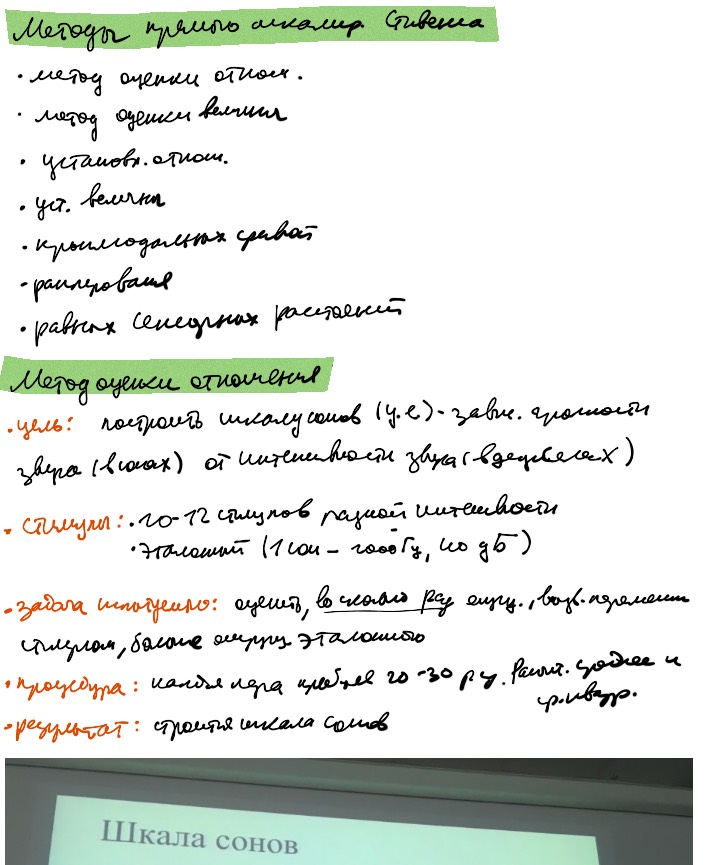 Методы прямого шкалир. Стивенса
• метод оценки отнош.
• метод оценки величин
• установл. отнош.
• уст. величин
• кроссмодальных сравнений
• ранжирования
• равных сенсорных расстояний
Метод оценки отношения
• цель: построить шкалу сонов (у.е) - завис. громкости
звука (в сонах) от интенсивности звука (в децибелах)
• Стимулы: • 10-12 стимулов разной интенсивности
• Эталонный (1 сон - 1000 Гц, 40 дБ)
• задача испытуемого: оценить, во сколько раз ощущ., вызв. переменным
стимулом, больше ощущ. эталонного
• процедура: каждая пара 20-30 раз. среднее и
• результат: строится шкала сонов
Шкала сонов